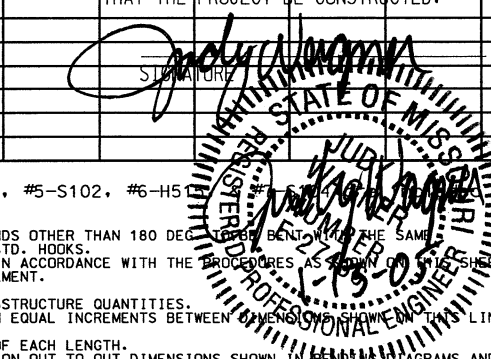 THAT THE PROJECT BE CONSTRUCTED.
Judy Wagner
SIGNATURE
STATE OF MISSOURI
REGISTERED PROFESSIONAL ENGINEER
JUDY
NUMBER
1-13-05
, #5-S102, #6-H515,
OTHER THAN 180 DEG. TO BE BENT WITH THE SAME
STD. HOOKS.
IN ACCORDANCE WITH THE PROCEDURES AS SHOWN ON THIS
STRUCTURE QUANTITIES.
EQUAL INCREMENTS BETWEEN DIMENSIONS SHOWN ON THIS
OF EACH LENGTH.
ON OUT TO OUT DIMENSIONS SHOWN IN BENDING DIAGRAMS AND